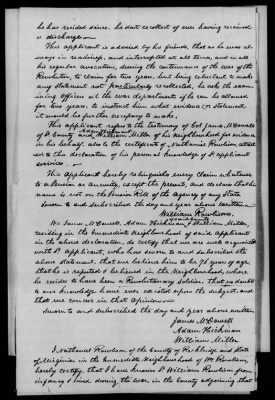 he has resided since. he dont recollect of ever having received
a discharge
This applicant is advised by his friends, that as he was al-
ways in readiness, and interrupted at all times, and in all
his regular avocation, during the continuance of the war of the
Revolution, to claim for two years, but being reluctant to make
any statement not particularly recollected, he asks the exam-
ining officers at the War department, if he can be allowed
for two years, to instruct him what evidence or statement,
it would be further necessary to make.
This applicant refers to the testimony of Col James McDowell
of County Adam Hickman and William Miller of his Neighborhood for evidence
in his behalf. also to the certificate of Nathaniel Rawlison attest
to this declaration of his personal knowledge of applicant
service
This applicant hereby relinquishes every claim whatever
to a Pension or annuity, except the present, and declares that his
name is not on the Pension Roll of the Agency of any State
Sworn to and subscribed the day and year above written
William Rawlison
We James McDowell, Adam Hickman & William Miller,
residing in the Immediate Neighborhood of said applicant
in the above declaration, do certify that we are well acquainted
with applicant, who has sworn to and subscribed the
above statement. that we believe him to be 76 years of age
that he is reputed & believed in the Neighborhood, where
he resides to have been a Revolutionary soldier. that no doubt
to our knowledge have ever existed upon the subject, and
that we concur in that opinion
Sworn to and subscribed the day and year above written
James McDowell
Adam Hickman
William Miller
I Nathaniel Rawlison of the County of Rockbridge and State
of Virginia, in the Immediate Neighborhood of Wm Rawlison,
hereby certify, that I have known William Rawlison, from
infancy I lived during the war, in the County adjoining that